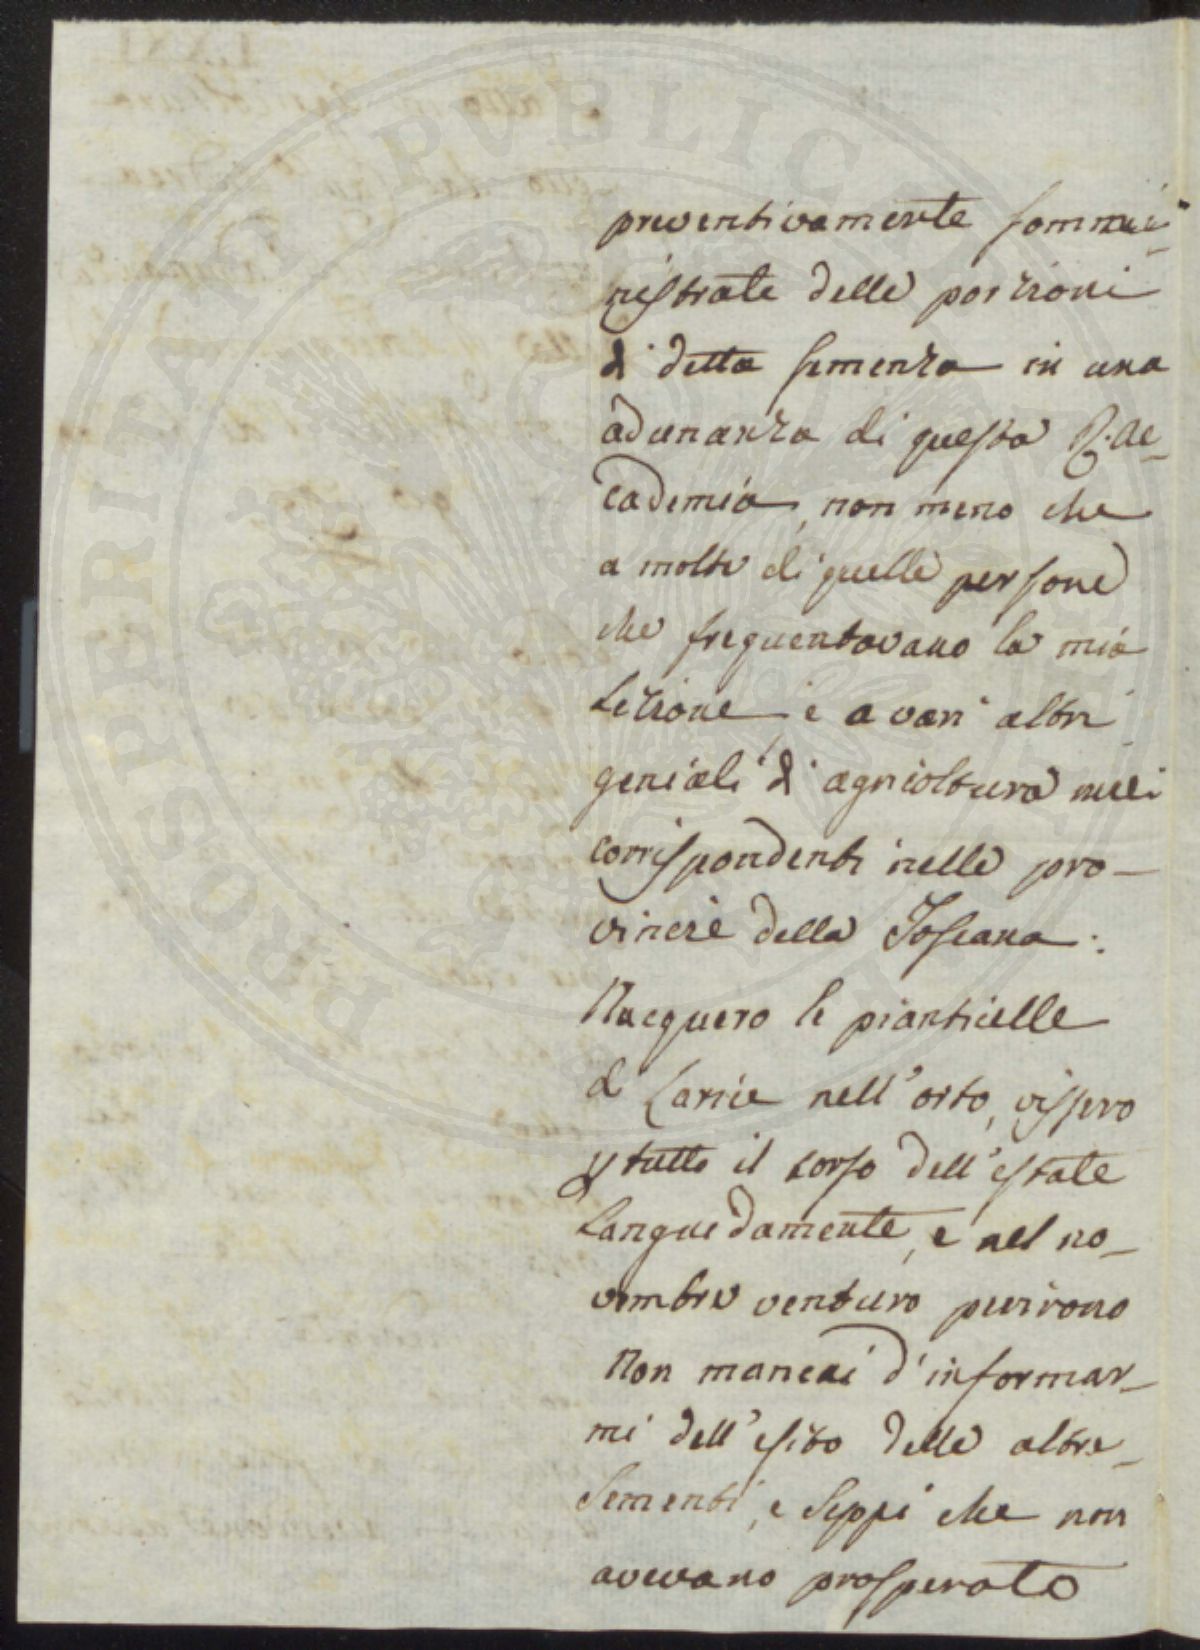 preventivamente sommi-
nistrate delle porzioni
di detta semenza in una
adunanza di questa R. Ac-
cademia, non meno che
a molte di quelle persone
che frequentavano la mia
Lezione e a varj altri
geniali di agricoltura miei
corrispondenti nelle pro-
vincie della Toscana.
Nacquero le pianticelle
di Larice nell'orto, vissero
p tutto il corso dell'estate
Languidamente, e nel no-
vembre venturo perirono
Non mancai d'informar-
mi dell'esito delle altre
Sementi, e Seppi che non
avevano prosperato
PROSPERITATI PUBLICAE